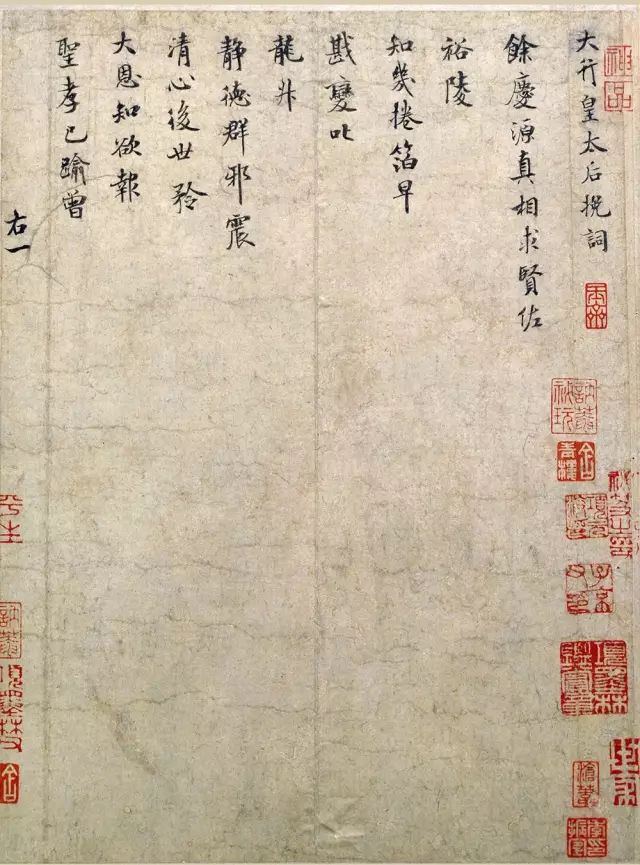 神品
大行皇太后挽詞
餘慶源真相求賢佐
裕陵
知幾捲箔早
戡變叱
龍升
静德群邪震
清心後世矜
大恩知欲報
聖孝已踰曾
右一